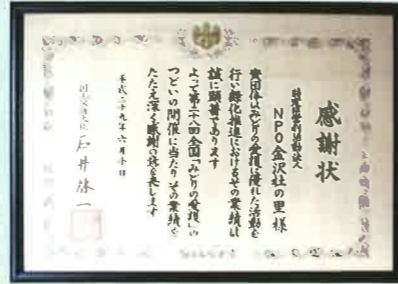 感謝状
特定非営利活動法人
NPO金沢杜の里 様
貴団体はみどりの愛護に優れた活動を
行い緑化推進におけるその業績は
誠に顕著であります
よって第二十八回全国「みどりの愛護」の
つどいの開催に当たりその業績を
たたえ深く感謝の意を表します
平成二十九年六月十日
国土交通大臣 石井啓一